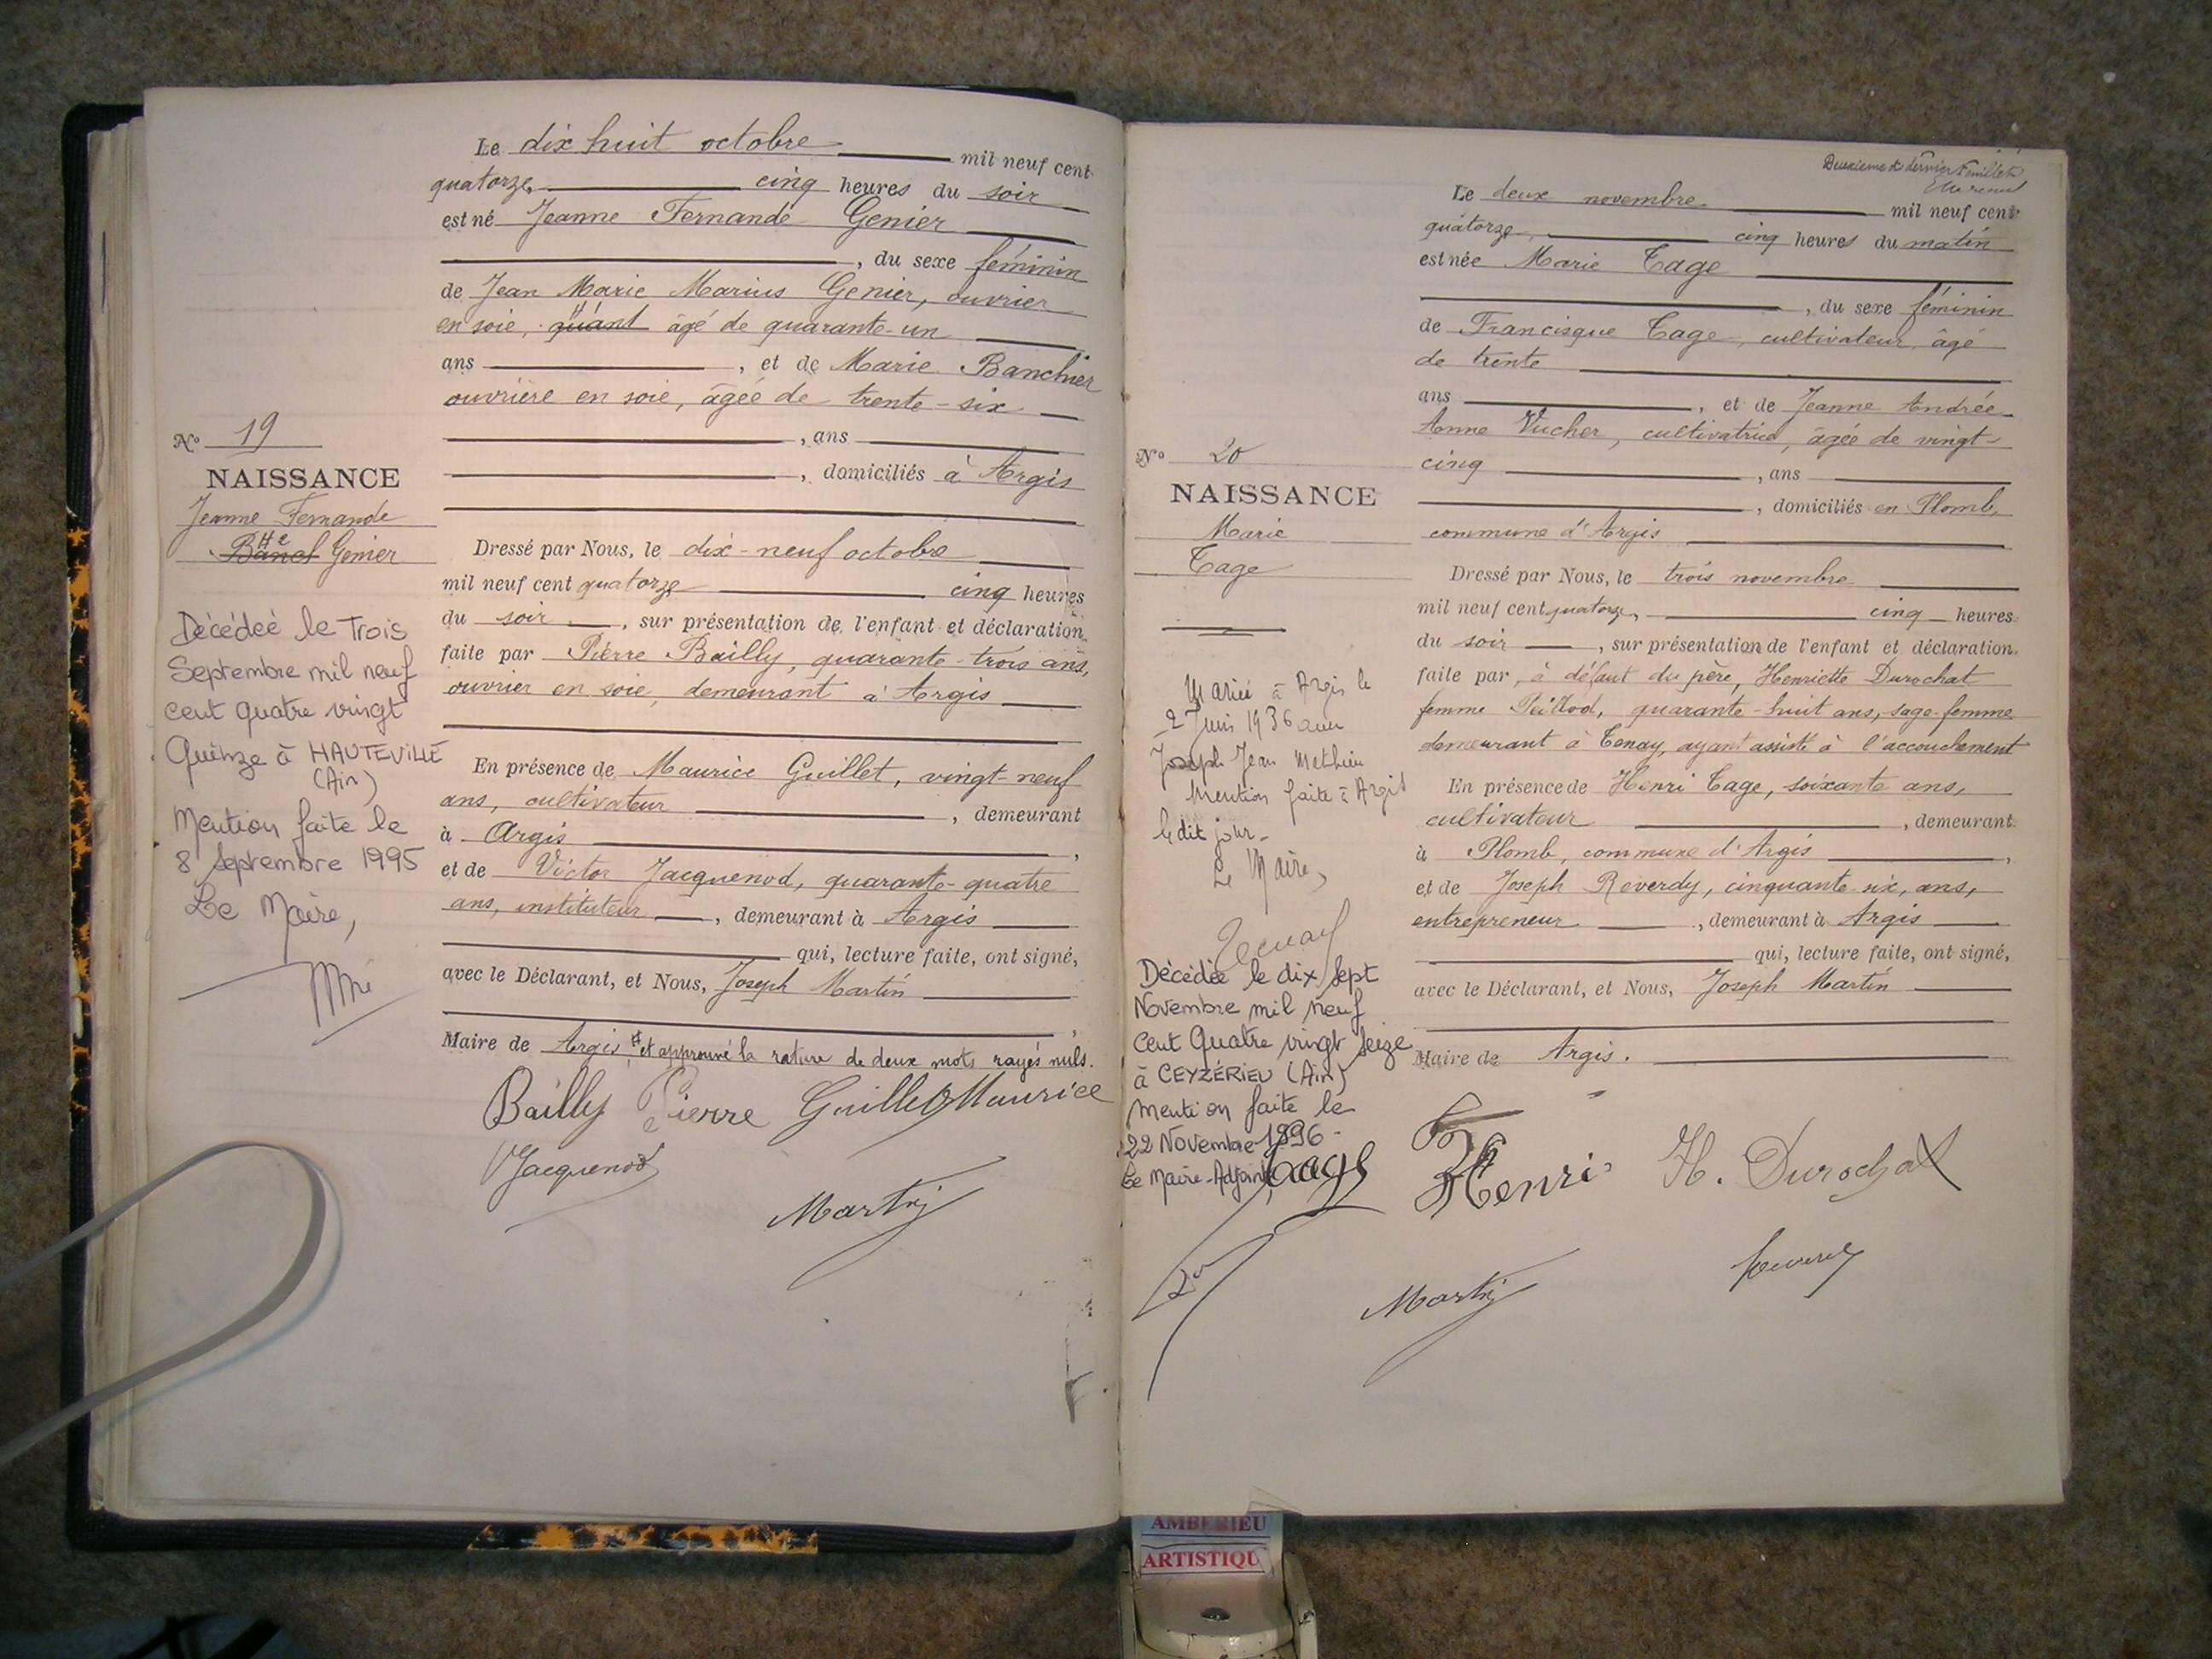 Le dix huit octobre mil neuf cent
quatorze, cinq heures du soir
est né Jeanne Fernande Genier
, du sexe féminin
de Jean Marie Marius Genier, ouvrier
en soie, quant âgé de quarante-un
ans , et de Marie Banchier
ouvrière en soie, âgée de trente-six
, ans
, domiciliés à Argis
No 19
NAISSANCE
Jeanne Fernande
Genier
Dressé par Nous, le dix-neuf octobre
mil neuf cent quatorze cinq heures
du soir , sur présentation de l'enfant et déclaration
faite par Pierre Bailly, quarante-trois ans,
ouvrier en soie, demeurant à Argis
En présence de Maurice Guillet, vingt-neuf
ans, cultivateur , demeurant
à Argis ,
et de Victor Jacquenod, quarante-quatre
ans, instituteur , demeurant à Argis
qui, lecture faite, ont signé,
avec le Déclarant, et Nous, Joseph Martin
,
Maire de Argis, # et approuvé la rature de deux mots rayés nuls.
Décédeé le Trois
Septembre mil neuf
cent quatre vingt
Quinze à HAUTEVILLE
(Ain)
Mention faite le
8 Septembre 1995
Le Maire,
Bailly Pierre Guillet Maurice
VJacquenod
Martin
Deuxième et dernier feuillet
Le deux novembre mil neuf cent
quatorze, cinq heures du matin
est née Marie Tage
, du sexe féminin
de Francisque Tage, cultivateur, âgé
de trente
ans , et de Jeanne Andrée
Anne Vucher, cultivatrice, âgée de vingt-
cinq , ans
, domiciliés en Plomb,
commune d'Argis
No 20
NAISSANCE
Marie
Tage
Dressé par Nous, le trois novembre
mil neuf cent quatorze, cinq heures
du soir , sur présentation de l'enfant et déclaration
faite par, à défaut du père, Henriette Durochat
femme Peillod, quarante-huit ans, sage-femme
demeurant à Tenay, ayant assisté à l'accouchement
En présence de Henri Tage, soixante ans,
cultivateur , demeurant
à Plomb, commune d'Argis ,
et de Joseph Reverdy, cinquante six, ans,
entrepreneur , demeurant à Argis
qui, lecture faite, ont signé,
avec le Déclarant, et Nous, Joseph Martin
Maire de Argis.
Mariée à Argis le
2 Juin 1936 avec
Joseph Jean Methieu
Mention faite à Argis
le dit jour-
Le Maire,
Décédée le dix sept
Novembre mil neuf
cent Quatre vingt seize
à CEYZÉRIEU (Ain)
mention faite le
22 Novembre 1996-
Le Maire-Adjoint,
Tage Henri H. Durochat
Martin
AMBERIEU
ARTISTIQU